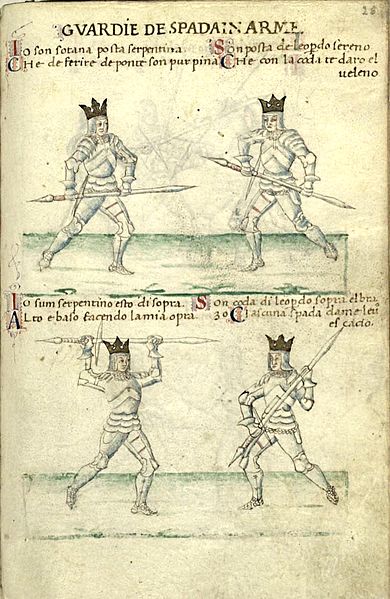 26
GVARDIE DE SPADA IN ARME
Io son sotana posta serpentina
CHe de ferire de ponte son pur pina
Son posta de leopdo sereno
CHe con la coda te daro el
ueleno
Io sum serpentino esto di sopra.
ALto e baso facendo la mia opra.
Son coda di leopdo sopra el bra
zo Ciascuna spada